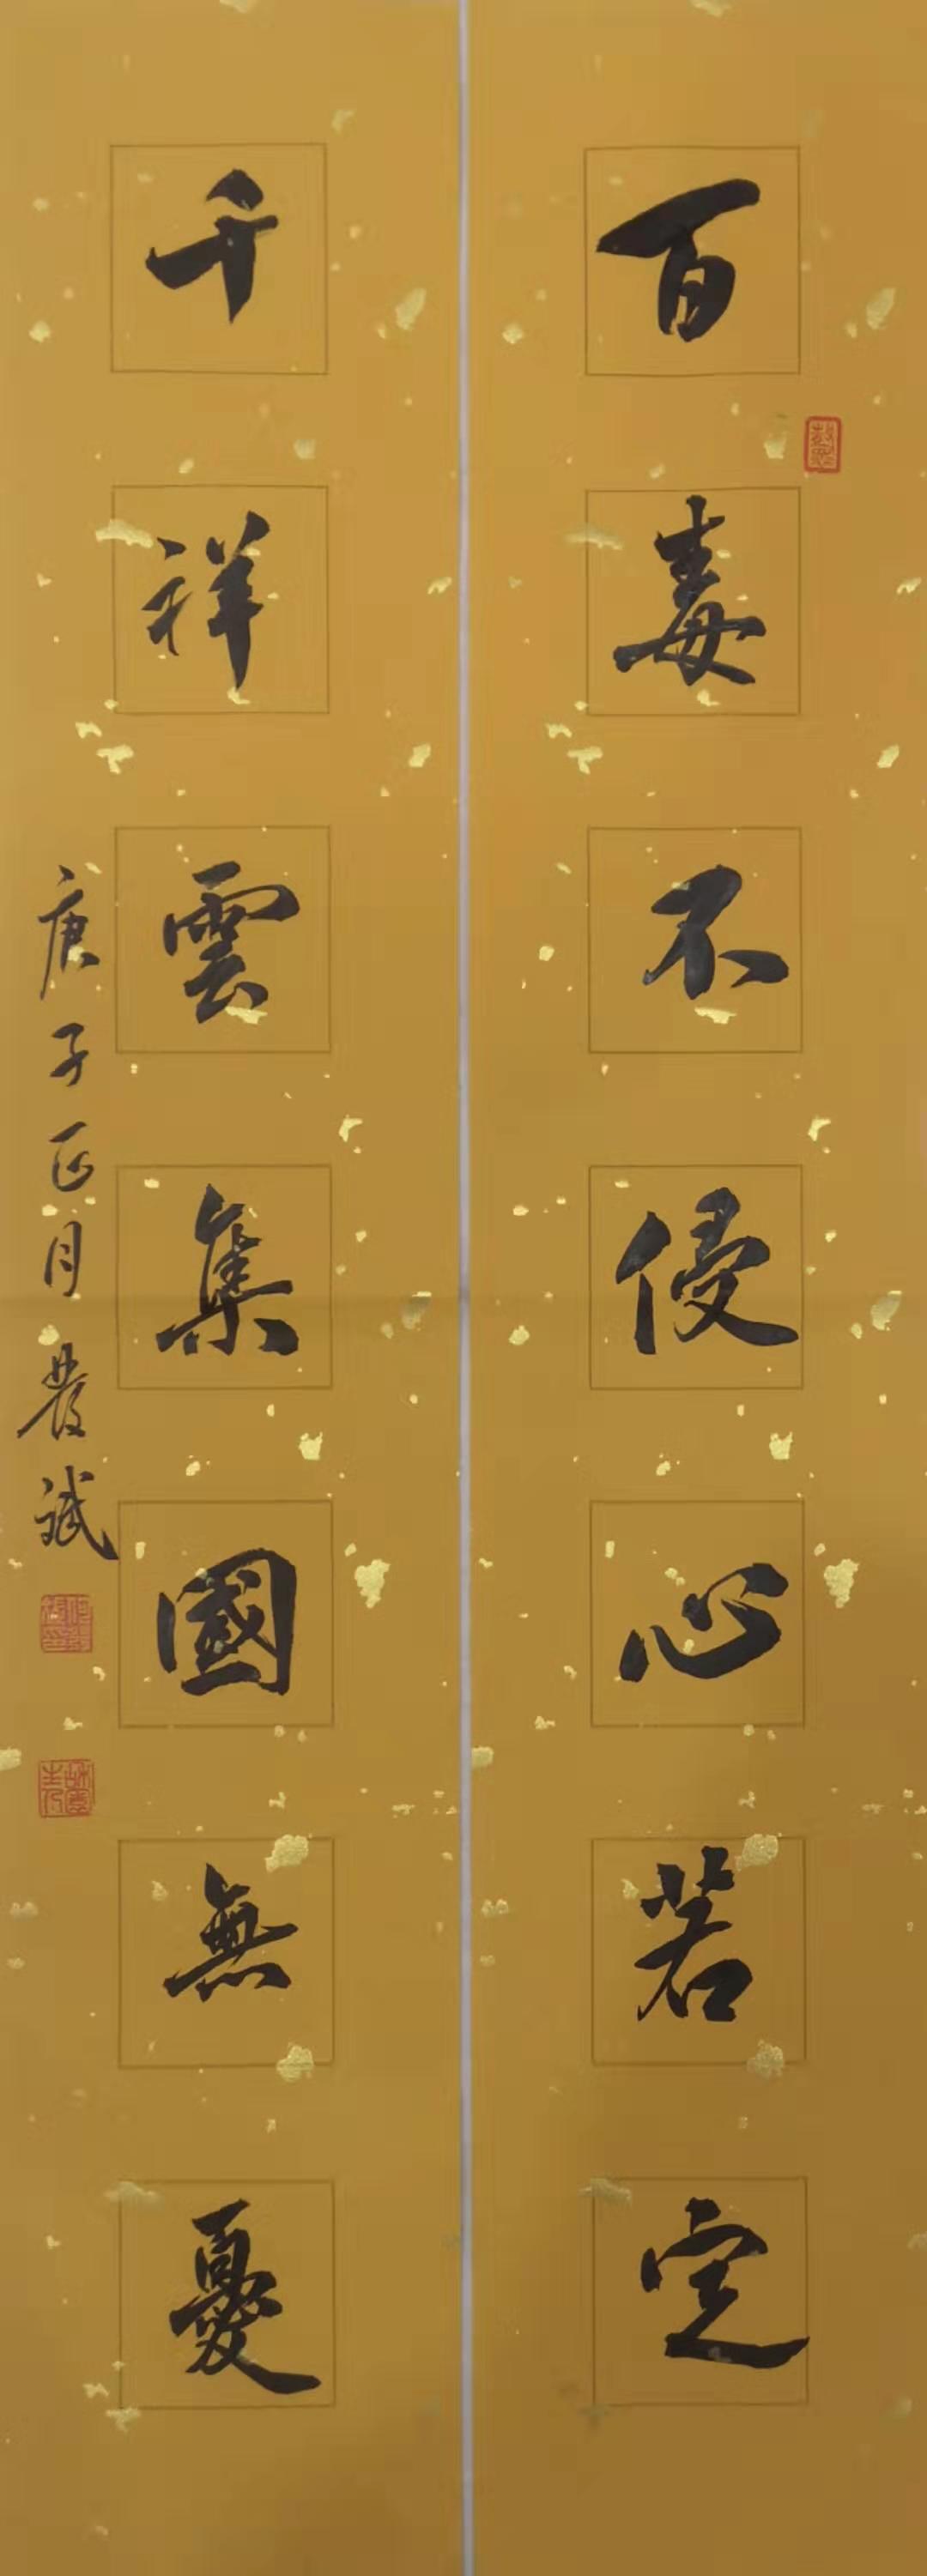 百毒不侵心若定
千祥雲集國無憂
庚子正月 農斌